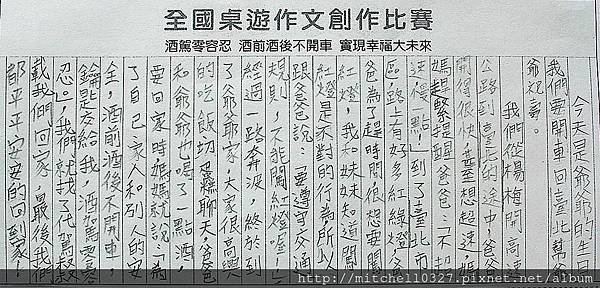 全國桌遊作文創作比賽
酒駕零容忍 酒前酒後不開車 實現幸福大未來
今天是爺爺的生日
我們要開車回臺北幫爺
爺祝壽。
我們從楊梅開高速
公路到臺北的途中，爸爸
開得很快，還想超速，媽
媽趕緊提醒爸爸：「不超
速慢一點」到了臺北市
區路上有好多紅綠燈，爸
爸為了趕時間很想要闖
紅燈，我和妹妹知道闖
紅燈是不對的行為所以
跟爸爸說：要遵守交通
規則，不能闖紅燈喔！
經過一路奔波，終於到
了爺爺家，大家很高興
的吃飯切蛋糕聊天，爸爸
和爺爺也喝了一點酒，
要回家時媽媽就說「為
了自己家人和別人的安
全，酒前酒後不開車，
鑰匙交給我，酒駕零容
忍。」我們就找了代駕
載我們回家，最後我們
都平平安安的回到家！
http://mitchell0327.pixnet.net/album